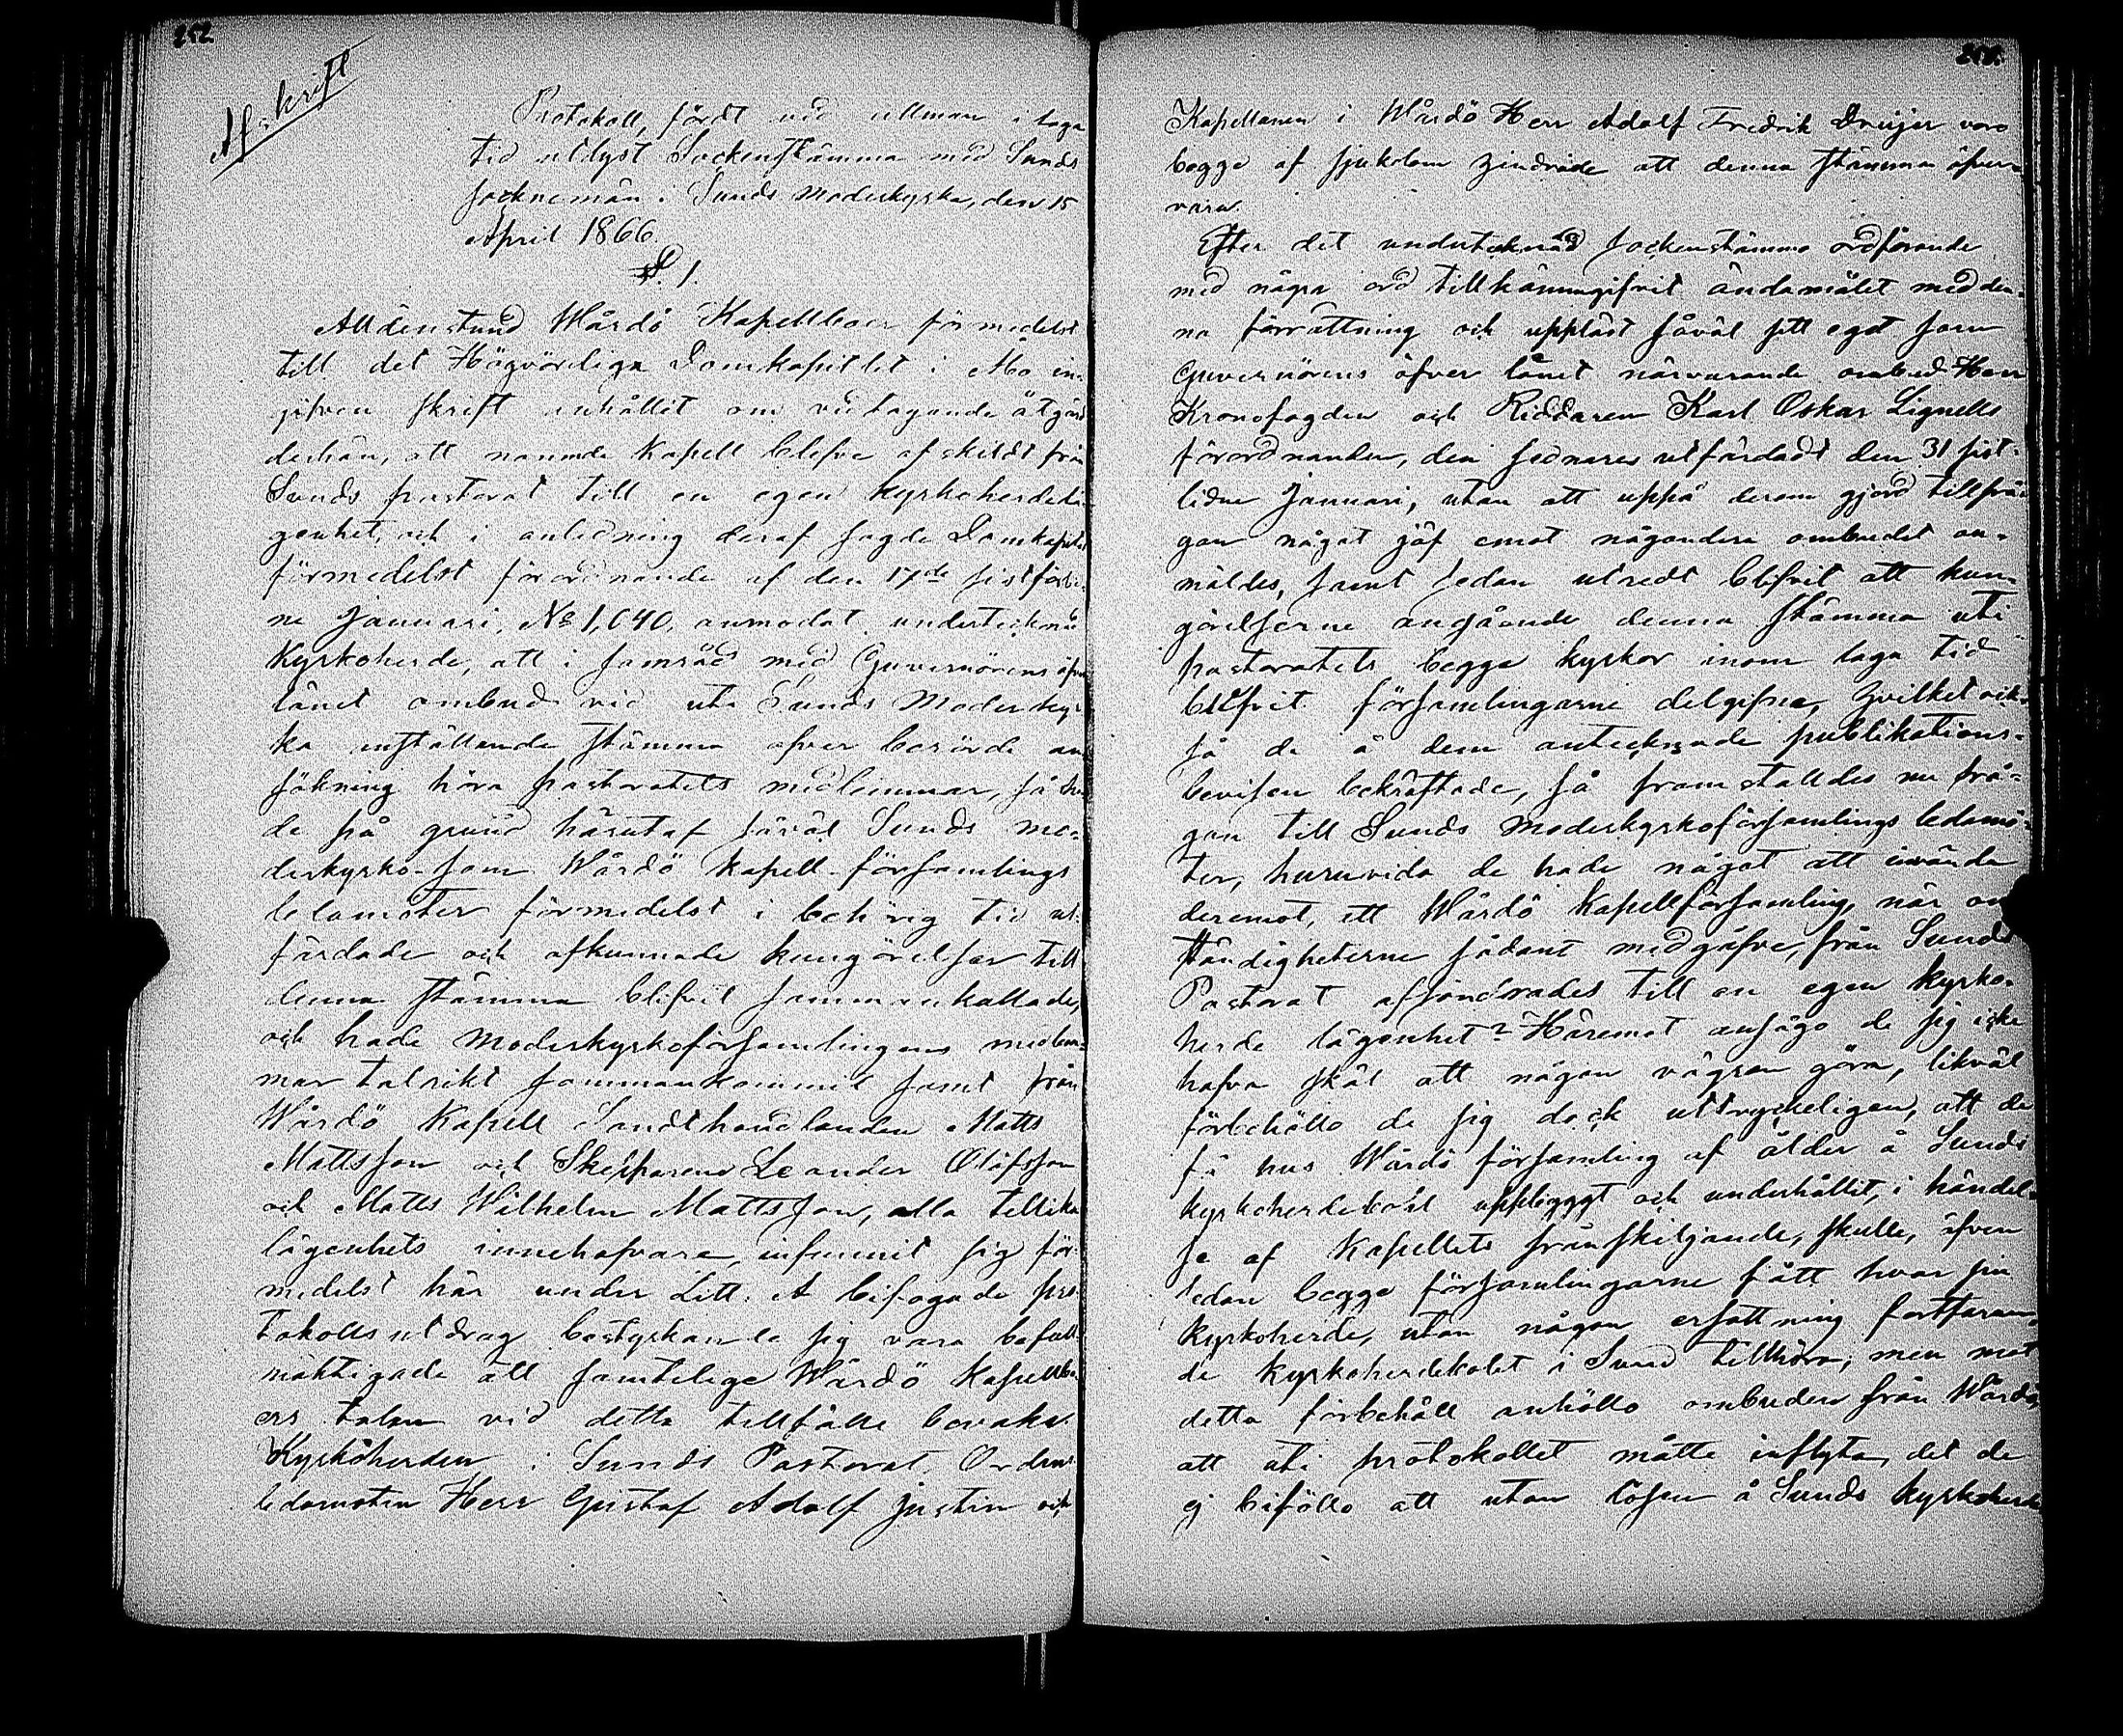 252
Afskrift
Protokoll, fördt vid allmän i laga
tid utlyst Sockenstämma med Sunds
sockne män i Sunds moderkyrka, den 15
April 1866.
§. 1.
Alldenstund Wårdö Kapellboer förmedelst
till det Högvördiga Domkapitlet i Åbo in-
gifven skrift anhållit om vidtagande åtgärd
derhän, att nämnde Kapell blefve afskildt från
Sunds pastorat till en egen kyrkoherdelä
genhet, och i anledning deraf sagde Domkapitel
förmedelst förordnande af den 17de sistförli-
ne Januari, No 1,040, anmodat undertecknad
Kyrkoherde, att i samråd med Guvernörens öfver
länet ombud vid uti Sunds Moderkyr-
ka anställande stämma öfver berörde an
sökning höra pastoratets medlemmar, så ha
de på grund häraf såväl Sunds mo-
derkyrko- som Wårdö kapell-församlings
ledamöter förmedelst i behörig tid ut-
färdade och afkunnade kungörelser till
denna stämma blifvit sammankallade,
och hade Moderkyrkoförsamlingens medlem-
mar talrikt sammankommit samt från
Wårdö Kapell Landthandlanden Matts
Mattsson och Skepparene Leander Olofsson
och Matts Wilhelm Mattsson, alla tillika
lägenhets innehafvare, infunnit sig för-
medelst här under Litt. A bifogade pro-
tokollsutdrag bestyrkande sig vara befull-
mäktigade att samtelige Wårdö Kapellbo-
ers talan vid detta tillfälle bevaka.
Kyrkoherden i Sunds Pastorat, Ordens
ledamoten Herr Gustaf Adolf Justin och
Kapellanen i Wårdö Herr Adolf Fredrik Dreijer voro
begge af sjukdom hindrade att denna stämma öfver-
vara.
Efter det undertecknad Sockenstämmo ordförande
med några ord tillkännagifvit ändamålet med den-
na förrättning och uppläst såväl sitt eget som
Guvernörens öfver länet närvarande ombud Herr
Kronofogden och Riddaren Karl Oskar Lignells
förordnanden, den sednares utfärdadt den 31 sist-
lidne Januari, utan att uppå derom gjord tillfrå-
gan något jäf emot någondera ombudet an-
mäldes, samt sedan utredt blifvit att kun-
görelserne angående denna stämma uti
pastoratets begge kyrkor inom laga tid
blifvit församlingarne delgifne, hvilket ock-
så de å dem antecknade publikations-
bevisen bekräftade, så framställdes nu frå-
gan till Sunds Moderkyrkoförsamlings ledamö-
ter, huruvida de hade något att invända
deremot, att Wårdö Kapellförsamling, när om
ständigheterne sådant medgåfve, från Sunds
Pastorat afsöndrades till en egen kyrko-
herde lägenhet? Häremot ansågo de sig icke
hafva skäl att någon vägran göra, likväl
förbehöllo de sig dock uttryckeligen, att de
få hus Wårdö församling af ålder å Sunds
kyrkoherdeboel uppbyggt och underhållit, i händel-
se af Kapellets frånskiljande, skulle, äfven
sedan begge församlingarne fått hvar sin
kyrkoherde, utan någon ersättning fortfaran-
de kyrkoherdebolet i Sund tillhöra; men mot
detta förbehåll anhöllo ombuden från Wårdö,
att uti protokollet måtte inflyta, det de
ej biföllo att utan lösen å Sunds kyrkoherde